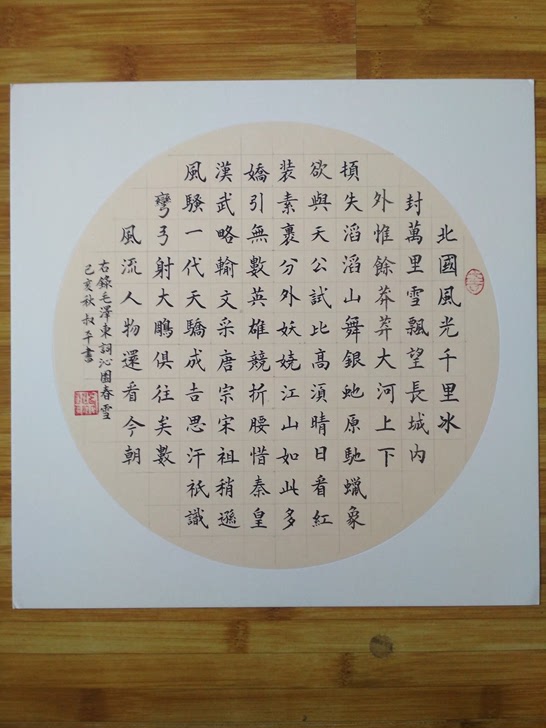 北國風光千里冰
封萬里雪飄望長城内
外惟餘莽莽大河上下
頓失滔滔山舞銀虵原馳蠟象
欲與天公試比高湏晴日看紅
装素裹分外妖娆江山如此多
嬌引無數英雄競折腰惜秦皇
漢武略輸文采唐宗宋祖稍遜
風騷一代天驕成吉思汗祇識
彎弓射大鵰俱往矣數
風流人物還看今朝
右錄毛澤東詞沁園春雪
己亥秋 叔平書